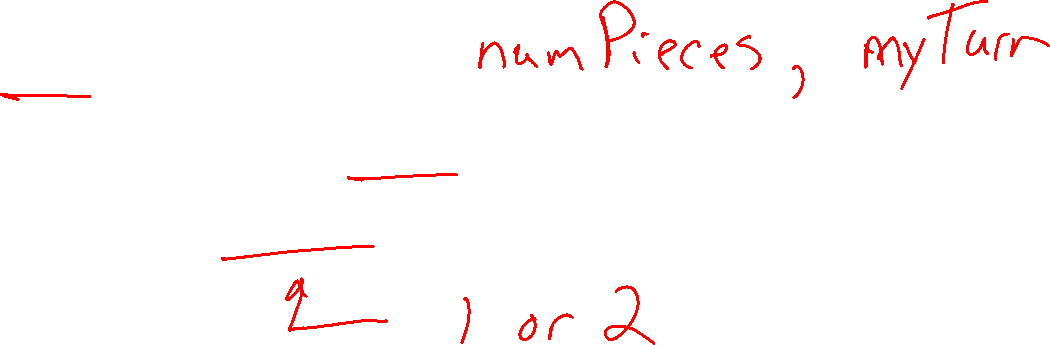 numPieces, myTurn
1 or 2